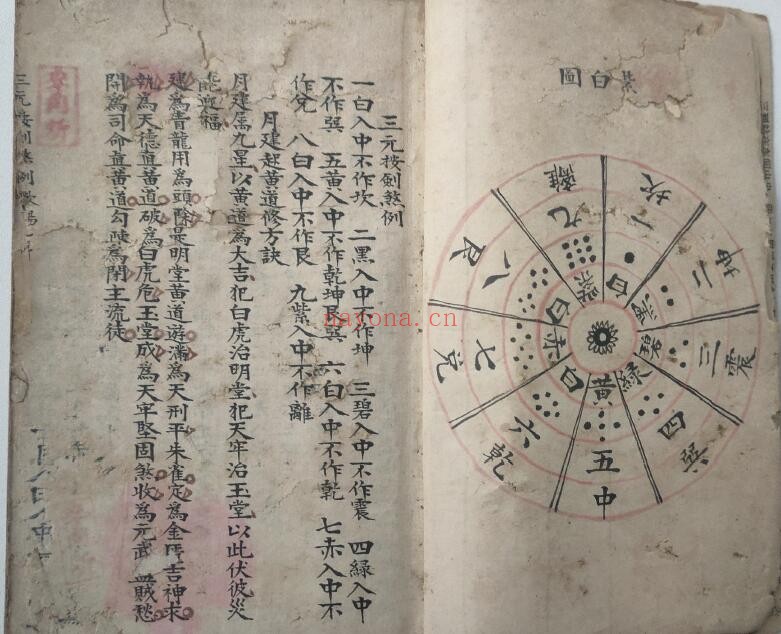 紫白圖
一 坎 白
二 坤 黑
三 震 碧
四 巽 綠
五 中 黃
六 乾 白
七 兌 赤
八 艮 白
九 離 紫
三元按劍煞例
一白入中不作坎 二黑入中不作坤 三碧入中不作震 四綠入中
不作巽 五黃入中不作乾坤艮巽 六白入中不作乾 七赤入中不
作兌 八白入中不作艮 九紫入中不作離
月建起黃道修方訣
月建屬九星以黃道為大吉犯白虎治明堂犯天牢治玉堂以此伏彼災
能致福
建為青龍用為頭除是明堂黃道遊滿為天刑平朱雀定為金匱吉神求
執為天德直黃道破為白虎危玉堂成為天牢堅固煞收為元武盜賊愁
開為司命直黃道勾陳為閉主流徒
nayona.cn